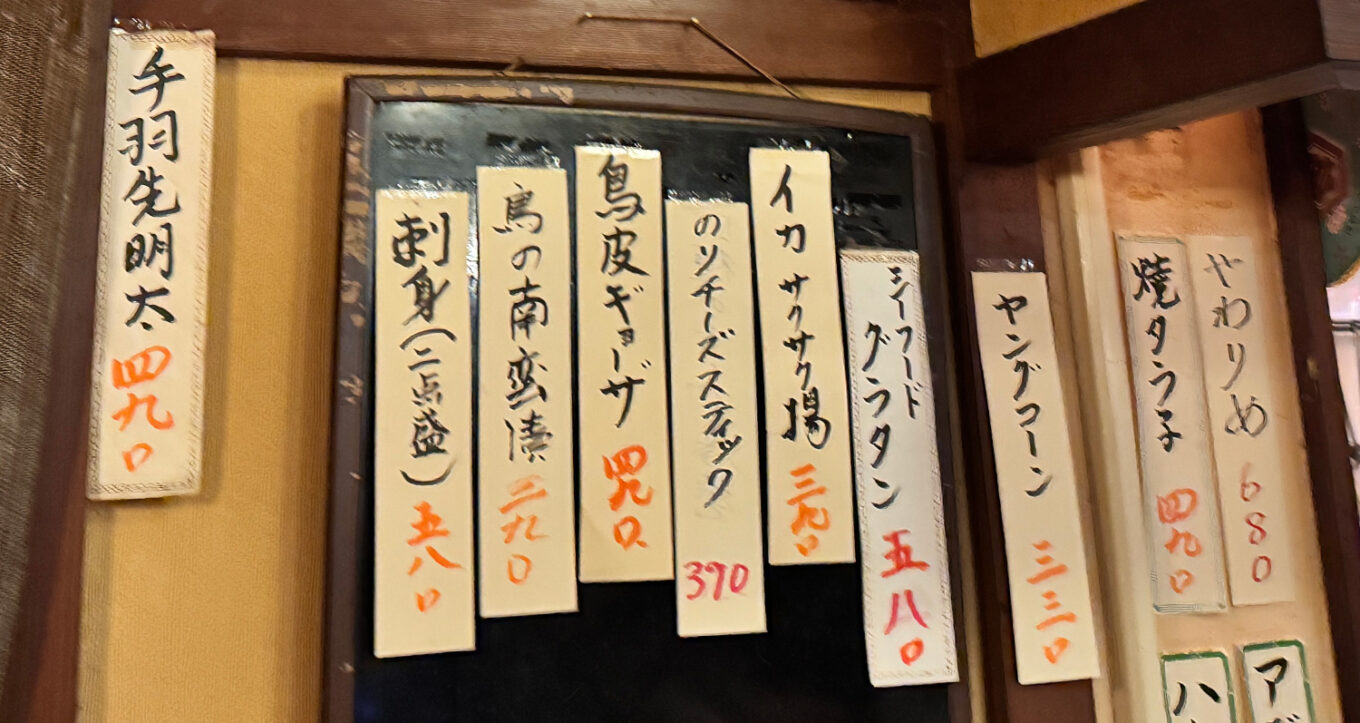 やわりめ 680
焼タラ子 四九〇
ヤングコーン 三三〇
シーフード
グラタン 五八〇
イカサクサク揚 三九〇
のりチーズスティック 390
鳥皮ギョーザ 四九〇
鳥の南蛮漬 三九〇
刺身(二点盛) 五八〇
手羽先明太 四九〇
ア
ハ